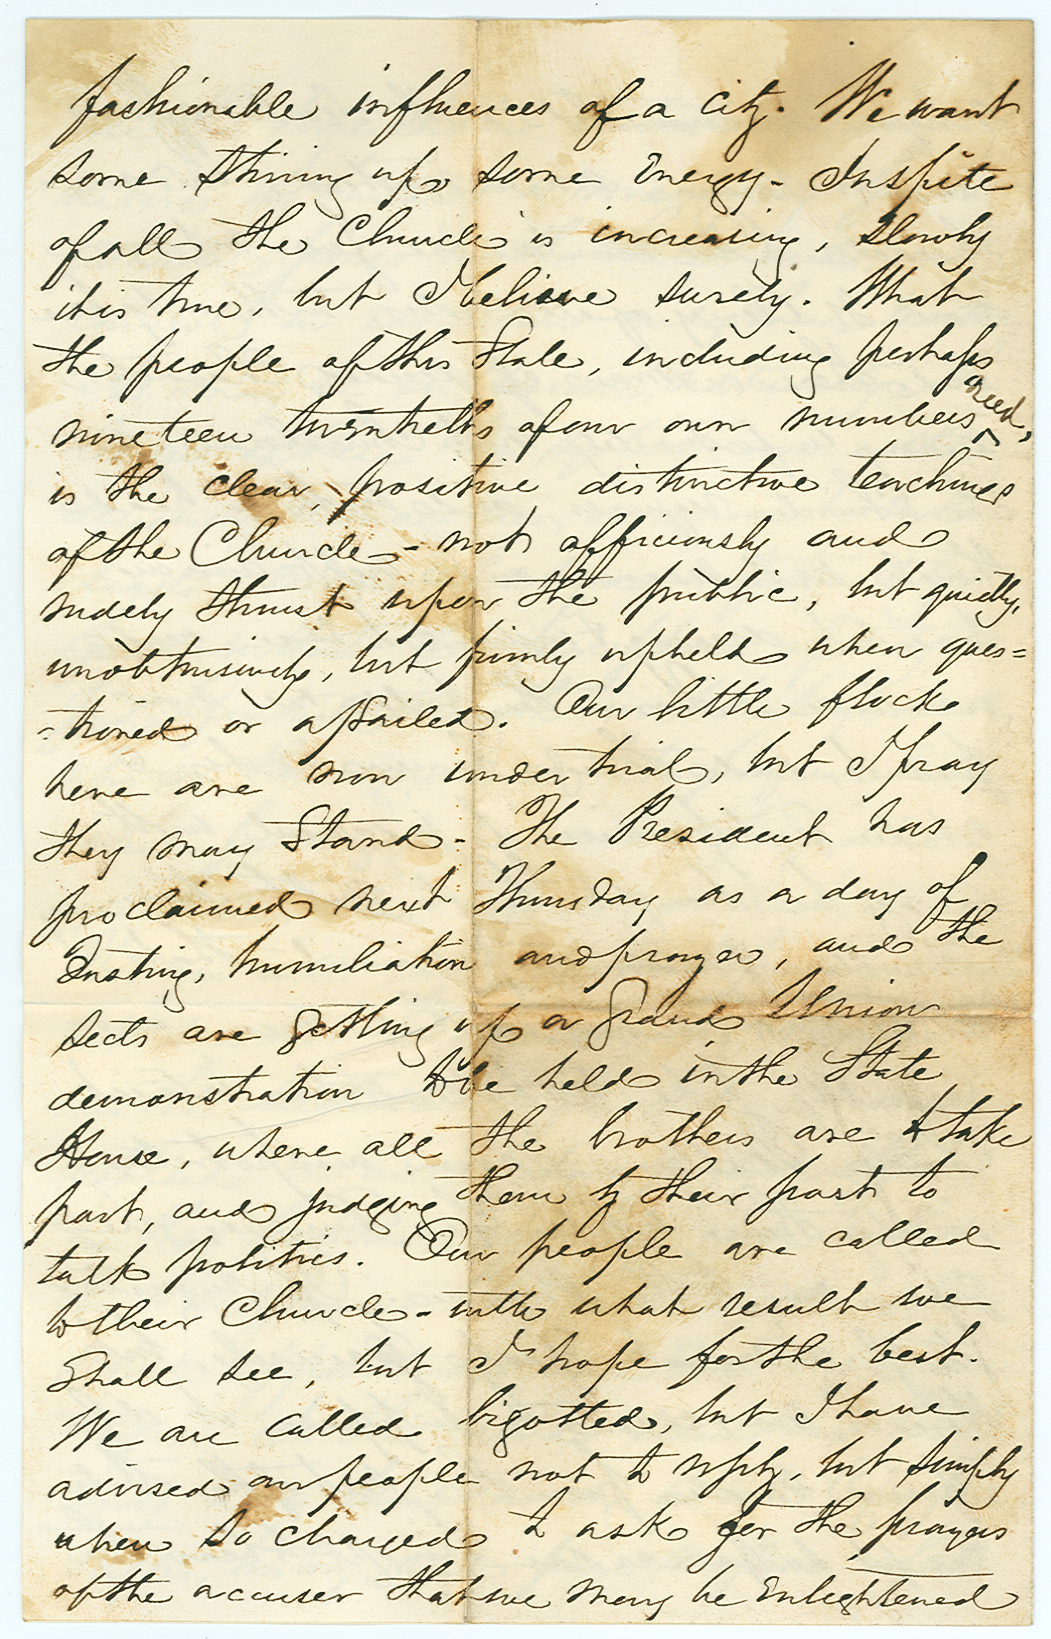 fashionable influences of a city. We want
some stirring up some energy - Inspite
of all the Church is increasing, slowly
it is true, but I believe surely. What
the people of this State, including perhaps
nineteen twentieths of our own numbers need,
is the clear, positive distinctive teachings
of the Church - not officiously and
rudely thrust upon the public, but quietly,
unobtrusively, but firmly upheld when ques=
=tioned or assailed. Our little flock
here are now under trial, but I pray
they may stand - The President has
proclaimed next Thursday as a day of
Fasting, humiliation and prayer, and the
sects are getting up a grand Union
demonstration to be held in the State
House, where all the brothers are to take
part, and judging them by their past to
talk politics. Our people are called
to their Church - with what result we
shall see, but I hope for the best.
We are called bigotted, but I have
advised our people not to reply, but simply
when so charged to ask for the prayers
of the accuser that we may be enlightened